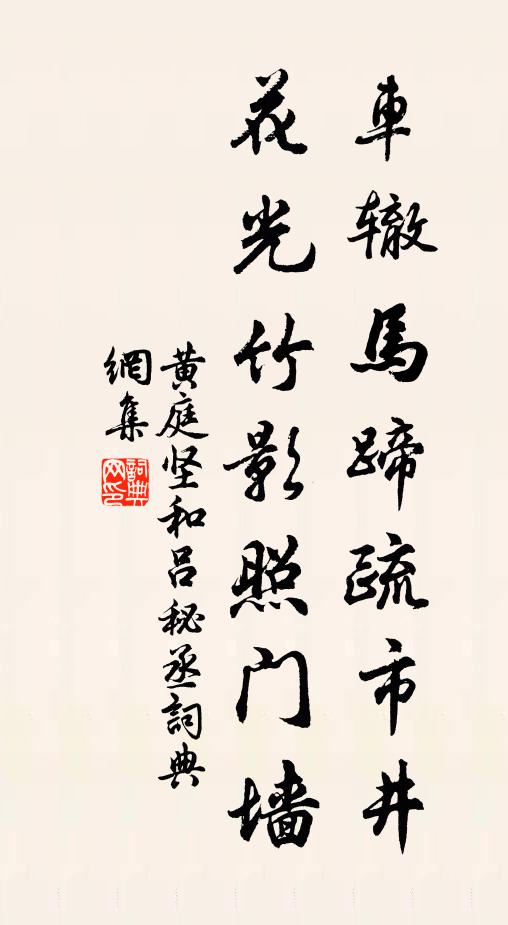 車辙馬蹄疏市井
花光竹影照门墙
黄庭坚和吕秘丞詞典
網集
詞典网印